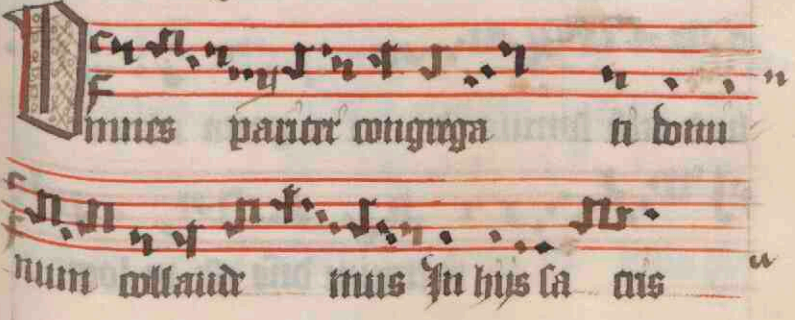 Omnes pariter congrega ti domi
num collaude mus In hijs sa cris